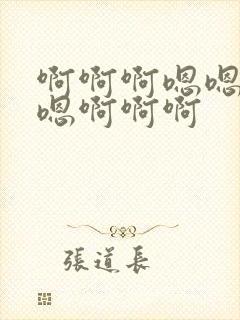 啊啊啊嗯嗯
嗯啊啊啊
張道長